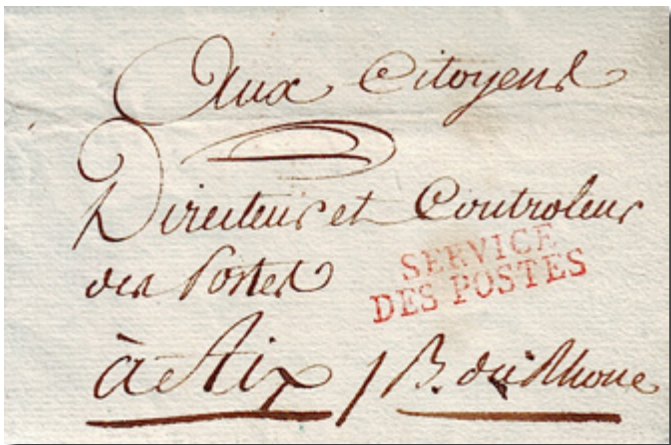 Aux Citoyens
Directeur et Controleur
des Postes
SERVICE
DES POSTES
à Aix / B. du Rhone